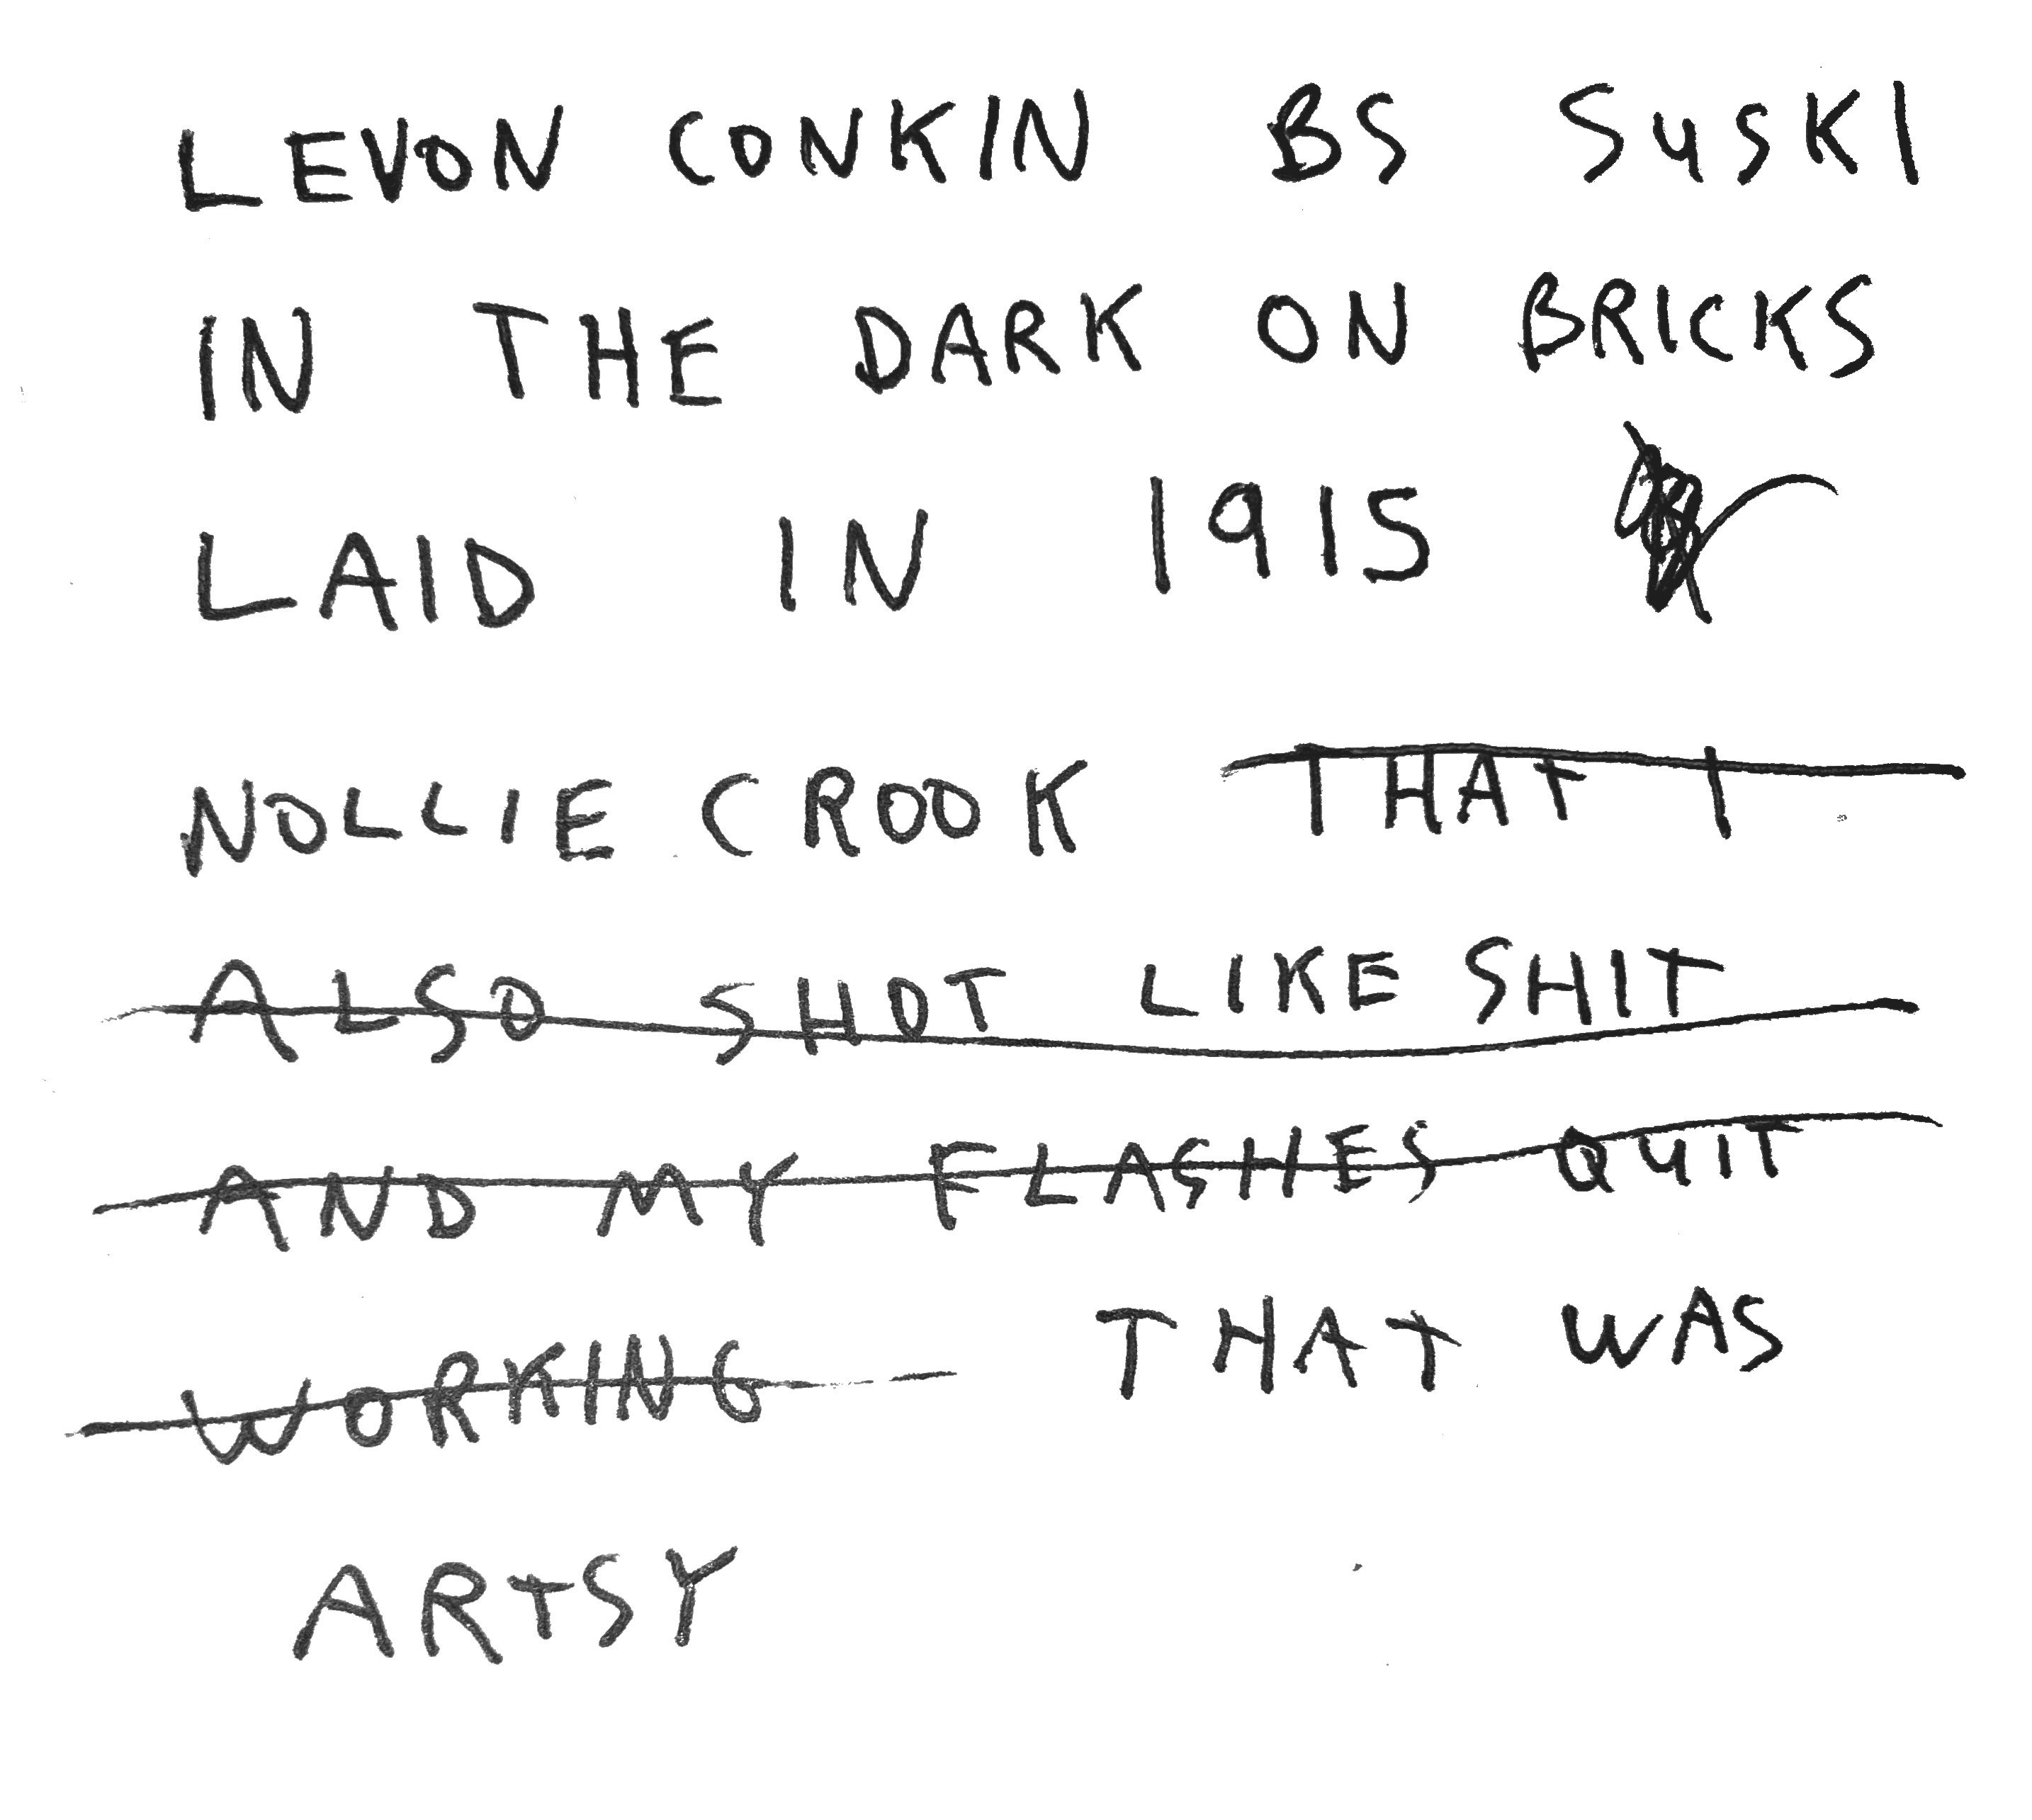 LEVON CONKIN BS SUSKI
IN THE DARK ON BRICKS
LAID IN 1915
NOLLIE CROOK THAT I
ALSO SHOT LIKE SHIT
AND MY FLASHES QUIT
WORKING THAT WAS
ARTSY